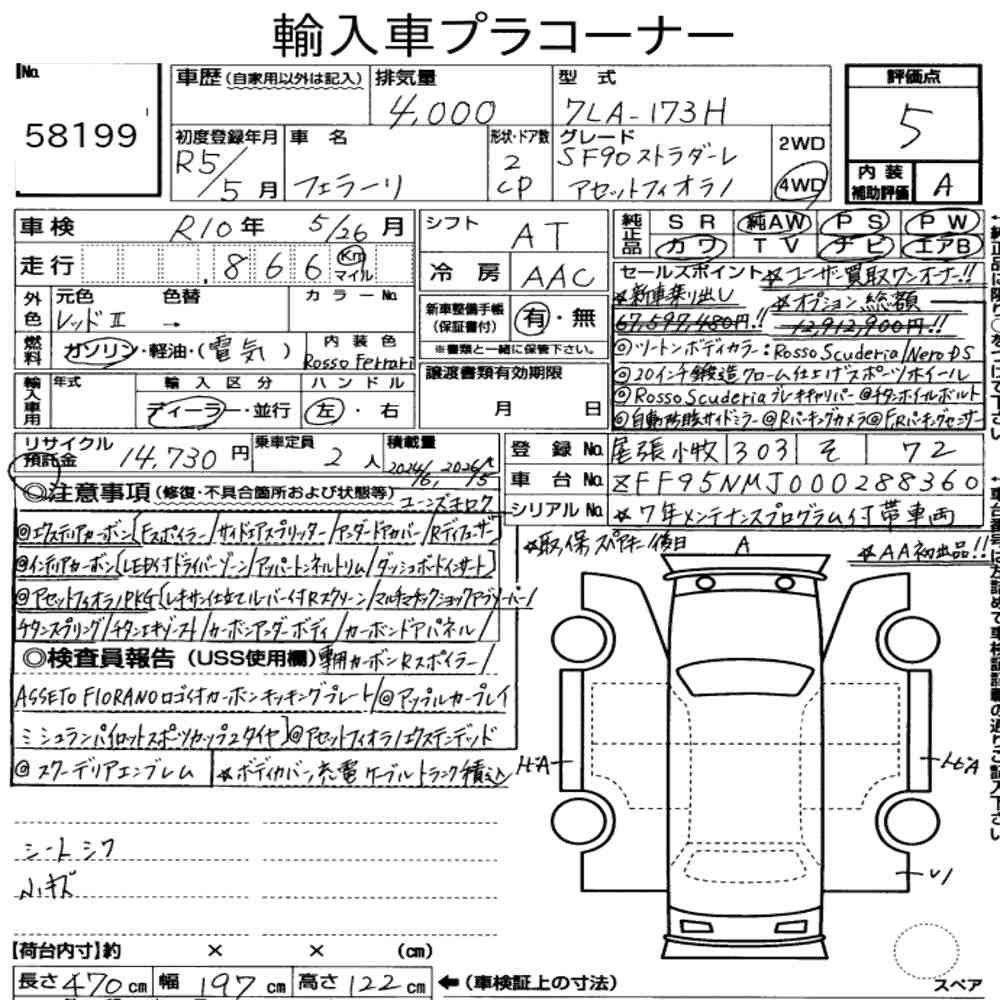 輸入車プラコーナー
No.
58199
車歴(自家用以外は記入)
排気量
4,000
型 式
7LA-173H
評価点
5
初度登録年月
R5/5月
車 名
フェラーリ
形状・ドア数
2
CP
グレード
SF90ストラダーレ
アセットフィオラノ
2WD
4WD
内装
補助評価
A
車検
R10年 5/26月
走行
866
Km
マイル
外色
元色
レッドⅡ
色替
→
カラーNo.
燃料
ガソリン・軽油・(電気)
内装色
Rosso Ferrari
輸入車用
年式
輸入区分
ディーラー・並行
ハンドル
左・右
シフト
AT
冷房
AAC
新車整備手帳
(保証書付)
有・無
※書類と一緒に保管下さい。
譲渡書類有効期限
月 日
純正品
SR 純AW PS PW
カワ TV ナビ エアB
セールスポイント ☆ユーザー買取ワンオーナー!!
☆新車乗り出し ☆オプション総額
67,597,480円!! 12,912,900円!!
◎ツートンボディカラー:Rosso Scuderia/Nero DS
◎20インチ鍛造クローム仕上げスポーツホイール
◎Rosso Scuderiaブレーキキャリパー ◎チタンホイールボルト
◎自動防眩サイドミラー ◎Rパーキングカメラ ◎F,Rパーキングセンサー
リサイクル
預託金
14,730円
乗車定員
2人
積載量
登録No.
尾張小牧 303 そ 72
車台No.
ZFF95NMJ000288360
シリアルNo.
☆7年メンテナンスプログラム付帯車両
◎注意事項(修復・不具合箇所および状態等)
◎エクステリアカーボン[Fスポイラー/サイドエアスプリッター/アンダードアカバー/Rディフューザー]
◎インテリアカーボン[LED付ドライバーゾーン/アッパートンネルトリム/ダッシュボードインサート]
◎アセットフィオラノPKG[レキサン仕立てルーバー付Rスクリーン/マルチマチックショックアブソーバー/
チタンスプリング/チタンエキゾースト/カーボンアンダーボディ/カーボンドアパネル/
◎検査員報告(USS使用欄)専用カーボンRスポイラー/
ASSETO FIORANOロゴ付カーボンキッキングプレート/◎アップルカープレイ
ミシュランパイロットスポーツカップ2タイヤ]◎アセットフィオラノエクステンデッド
◎スクーデリアエンブレム
☆ボディカバー、充電ケーブルトランク積込
☆取、保、スペアキー/後日
A
☆AA初出品!!
シートシワ
小キズ
【荷台内寸】約 × × (cm)
長さ470cm 幅197cm 高さ122cm
←(車検証上の寸法)
スペア